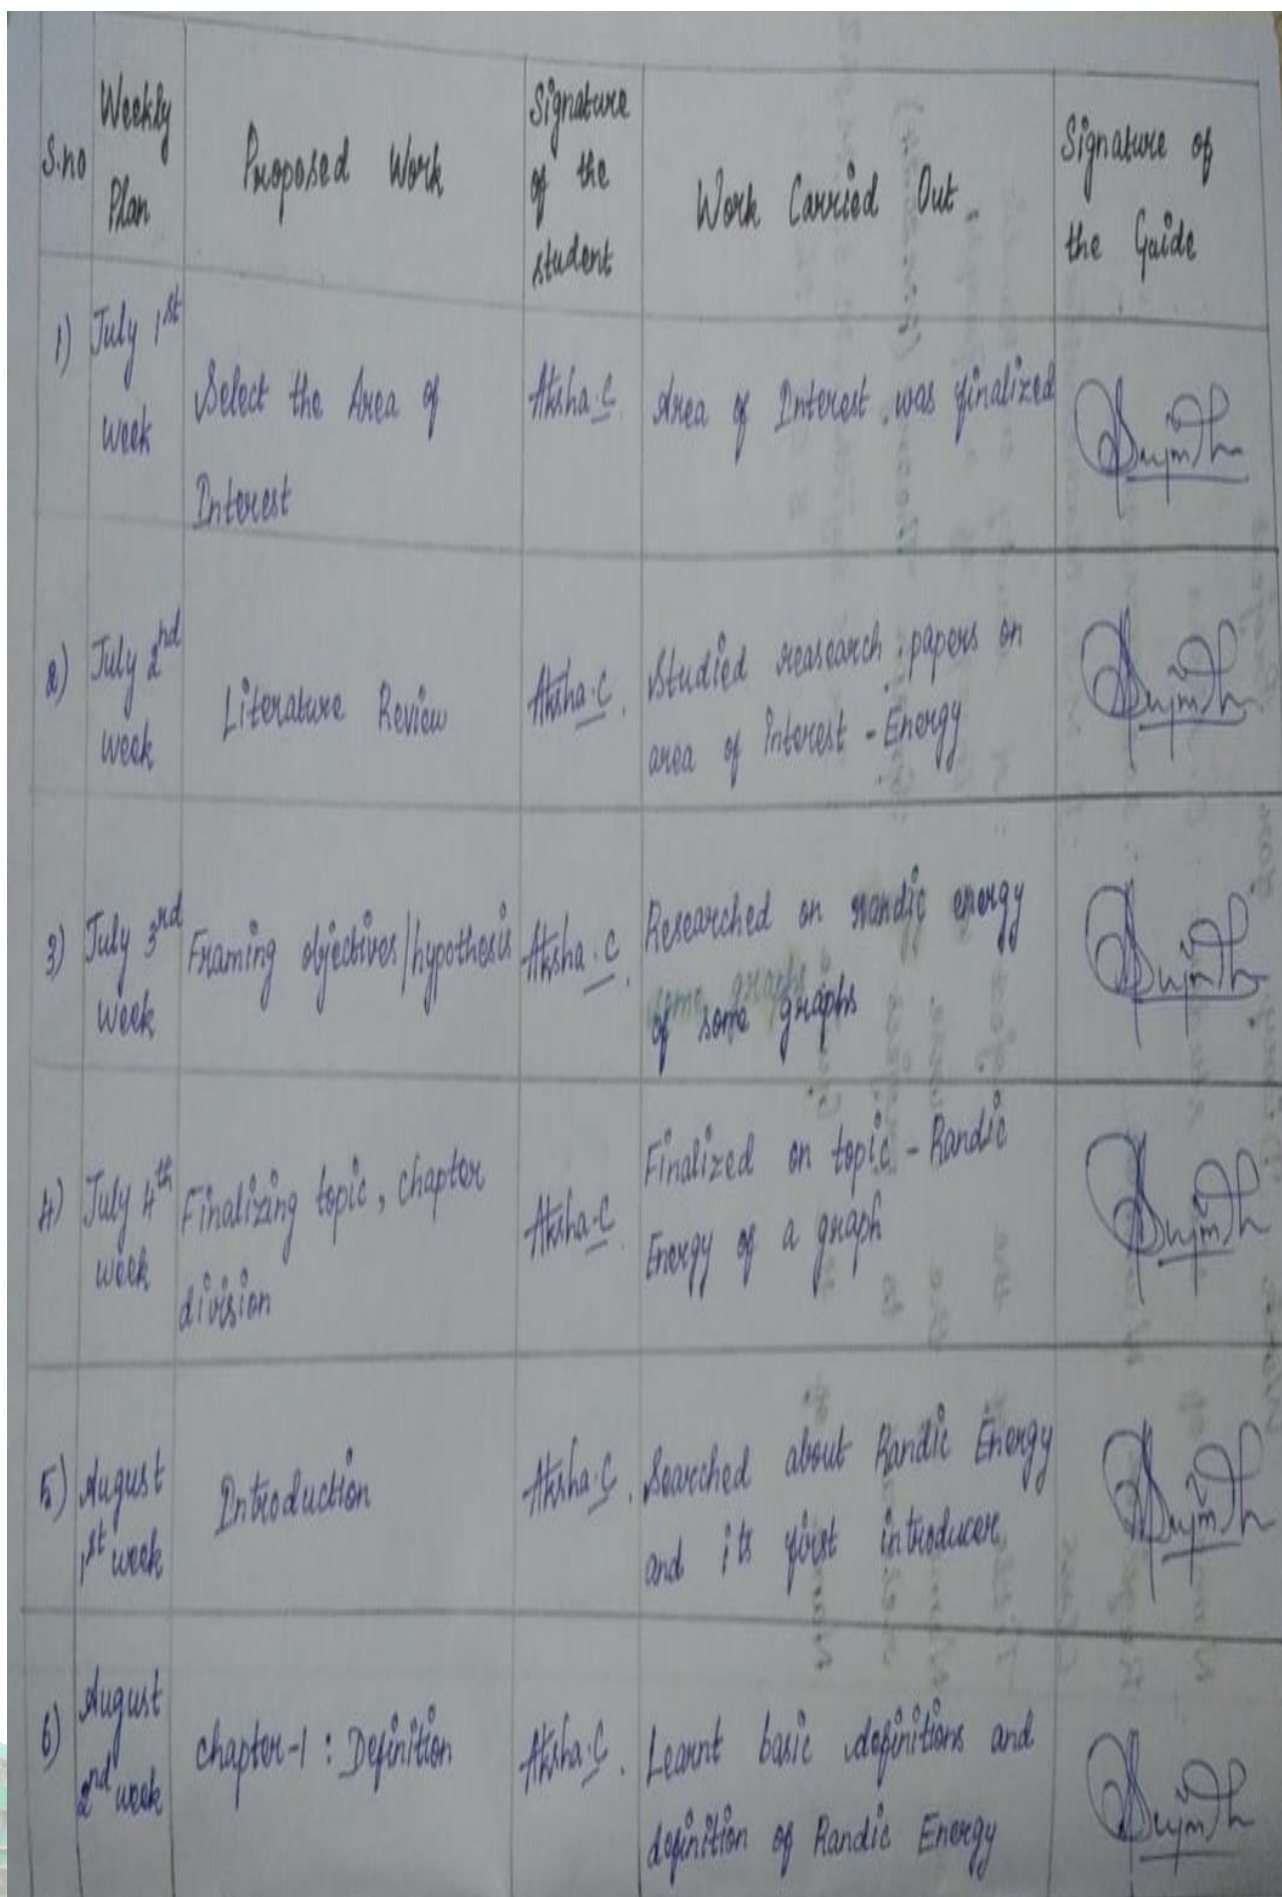 S.no
Weekly
Plan
Proposed Work
Signature
of the
student
Work Carried Out
Signature of
the Guide
1)
July 1st
week
Select the Area of
Interest
Aksha.C
Area of Interest was finalized
2)
July 2nd
week
Literature Review
Aksha.C.
Studied reasearch papers on
area of Interest - Energy
3)
July 3rd
week
Framing objectives/hypothesis
Aksha.C.
Researched on randic energy
of some graphs
4)
July 4th
week
Finalizing topic, chapter
division
Aksha.C.
Finalized on topic - Randic
Energy of a graph
5)
August
1st week
Introduction
Aksha.C.
Searched about Randic Energy
and its first introducer
6)
August
2nd week
chapter-1 : Definition
Aksha.C.
Learnt basic definitions and
definition of Randic Energy